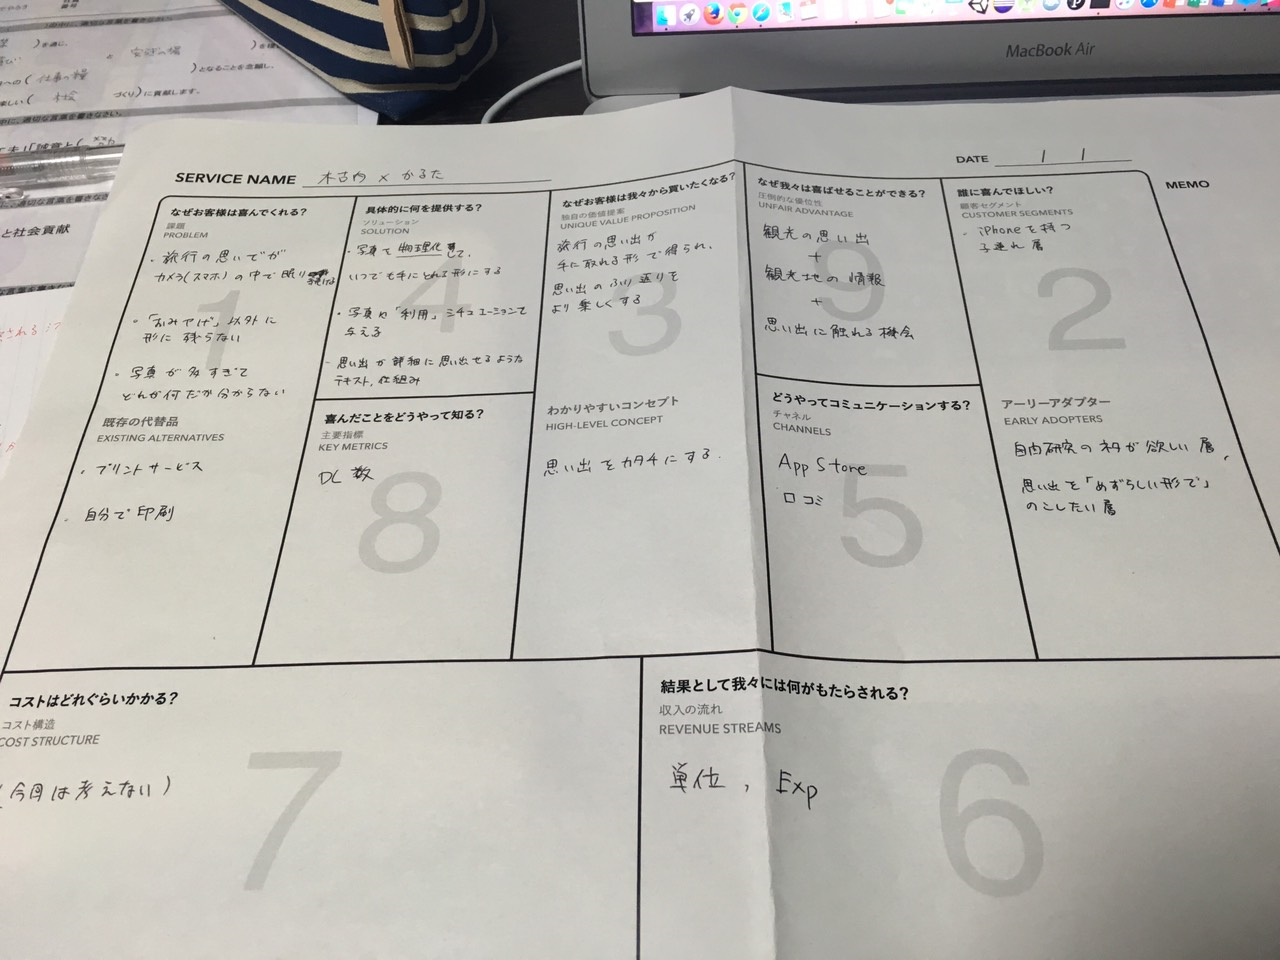 MacBook Air
SERVICE NAME 木古内 × かるた
DATE / /
MEMO
なぜお客様は喜んでくれる？
課題
PROBLEM
・旅行の思いでが
カメラ(スマホ)の中で眠り
・「おみやげ」以外に
形に残らない
・写真が多すぎて
どれが何だか分からない
既存の代替品
EXISTING ALTERNATIVES
・プリントサービス
・自分で印刷
具体的に何を提供する？
ソリューション
SOLUTION
・写真を物理化して、
いつでも手にとれる形にする
・写真に「利用」シチュエーションを
与える
・思い出が詳細に思い出せるような
テキスト、仕組み
喜んだことをどうやって知る？
主要指標
KEY METRICS
DL数
なぜお客様は我々から買いたくなる？
独自の価値提案
UNIQUE VALUE PROPOSITION
旅行の思い出が
手に取れる形で得られ、
思い出のふり返りを
より楽しくする
わかりやすいコンセプト
HIGH-LEVEL CONCEPT
思い出をカタチにする.
なぜ我々は喜ばせることができる？
圧倒的な優位性
UNFAIR ADVANTAGE
観光の思い出
+
観光地の情報
+
思い出に触れる機会
どうやってコミュニケーションする？
チャネル
CHANNELS
App Store
口コミ
誰に喜んでほしい？
顧客セグメント
CUSTOMER SEGMENTS
・iPhoneを持つ
子連れ層
アーリーアダプター
EARLY ADOPTERS
自由研究のネタが欲しい層、
思い出を「めずらしい形で」
のこしたい層
1
4
3
9
2
8
5
コストはどれぐらいかかる？
コスト構造
COST STRUCTURE
(今回は考えない)
7
結果として我々には何がもたらされる？
収入の流れ
REVENUE STREAMS
単位, Exp
6
)を通じ、
安らぎの場
(仕事の種
)となることを念願し、
楽しい( 社会 づくり)に貢献します。
と社会貢献